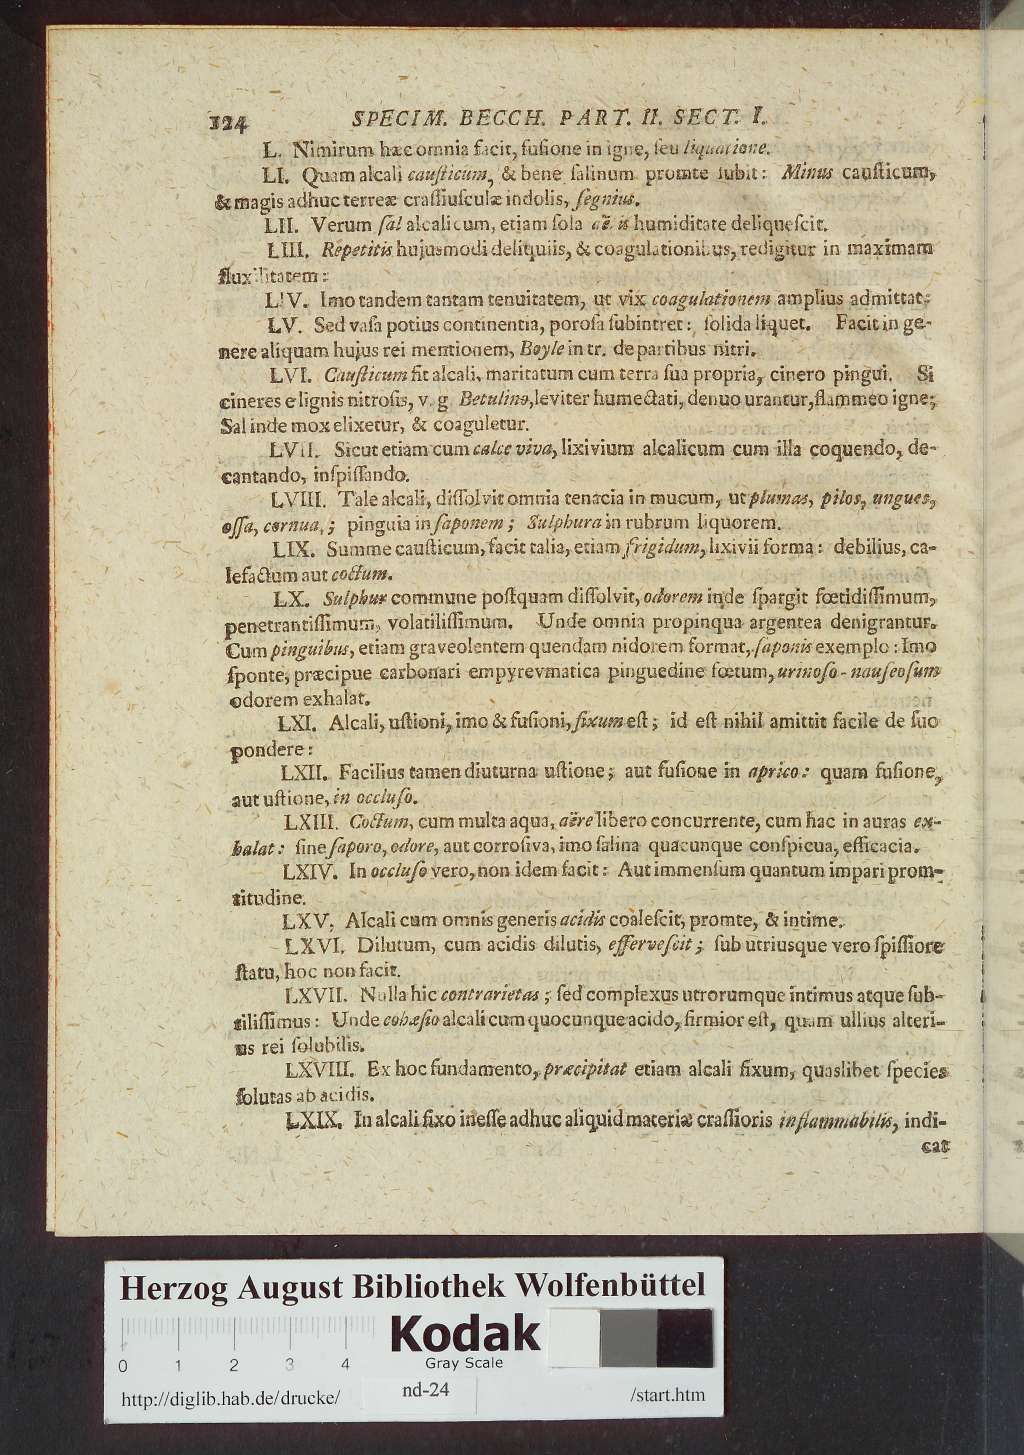 124 SPECIM. BECCH. PART. II. SECT. I.
L. Nimirum hæc omnia facit, fuſione in igne, ſeu liquatione.
LI. Quam alcali cauſticum, & bene ſalinum promte ſubit: Minus cauſticum,
& magis adhuc terreæ craſſiuſculæ indolis, ſegnius.
LII. Verum ſal alcalicum, etiam ſola aëris humiditate deliqueſcit.
LIII. Repetitis hujusmodi deliquiis, & coagulationibus, redigitur in maximam
fluxilitatem:
LIV. Imo tandem tantam tenuitatem, ut vix coagulationem amplius admittat:
LV. Sed vaſa potius continentia, poroſa ſubintret: ſolida liquet. Facit in ge-
nere aliquam hujus rei mentionem, Boyle in tr. de partibus nitri.
LVI. Cauſticum fit alcali, maritatum cum terra ſua propria, cinero pingui. Si
cineres e lignis nitroſis, v. g. Betulino, leviter humectati, denuo urantur, flammeo igne;
Sal inde mox elixetur, & coaguletur.
LVII. Sicut etiam cum calce viva, lixivium alcalicum cum illa coquendo, de-
cantando, inſpiſſando.
LVIII. Tale alcali, diſſolvit omnia tenacia in mucum, ut plumas, pilos, ungues,
oſſa, cornua,; pinguia in ſaponem; Sulphura in rubrum liquorem.
LIX. Summe cauſticum, facit talia, etiam frigidum, lixivii forma: debilius, ca-
lefactum aut coctum.
LX. Sulphur commune poſtquam diſſolvit, odorem inde ſpargit fœtidiſſimum,
penetrantiſſimum, volatiliſſimum. Unde omnia propinqua argentea denigrantur.
Cum pinguibus, etiam graveolentem quendam nidorem format, ſaponis exemplo: Imo
ſponte, præcipue carbonari empyrevmatica pinguedine fœtum, urinoſo-nauſeoſum
odorem exhalat.
LXI. Alcali, uſtioni, imo & fuſioni, fixum eſt; id eſt nihil amittit facile de ſuo
pondere:
LXII. Facilius tamen diuturna uſtione; aut fuſione in aprico: quam fuſione,
aut uſtione, in occluſo.
LXIII. Coctum, cum multa aqua, aëre libero concurrente, cum hac in auras ex-
halat: ſine ſaporo, odore, aut corroſiva, imo ſalina quacunque conſpicua, efficacia.
LXIV. In occluſo vero, non idem facit: Aut immenſum quantum impari prom-
titudine.
LXV. Alcali cum omnis generis acidis coaleſcit, promte, & intime.
LXVI. Dilutum, cum acidis dilutis, efferveſcit; ſub utriusque vero ſpiſſiore
ſtatu, hoc non facit.
LXVII. Nulla hic contrarietas; ſed complexus utrorumque intimus atque ſub-
tiliſſimus: Unde cohæſio alcali cum quocunque acido, firmior eſt, quam ullius alteri-
us rei ſolubilis.
LXVIII. Ex hoc fundamento, præcipitat etiam alcali fixum, quaslibet ſpecies
ſolutas ab acidis.
LXIX. In alcali fixo ineſſe adhuc aliquid materiæ craſſioris inflammabilis, indi-
cat
Herzog August Bibliothek Wolfenbüttel
Kodak
Gray Scale
0 1 2 3 4
http://diglib.hab.de/drucke/ nd-24 /start.htm